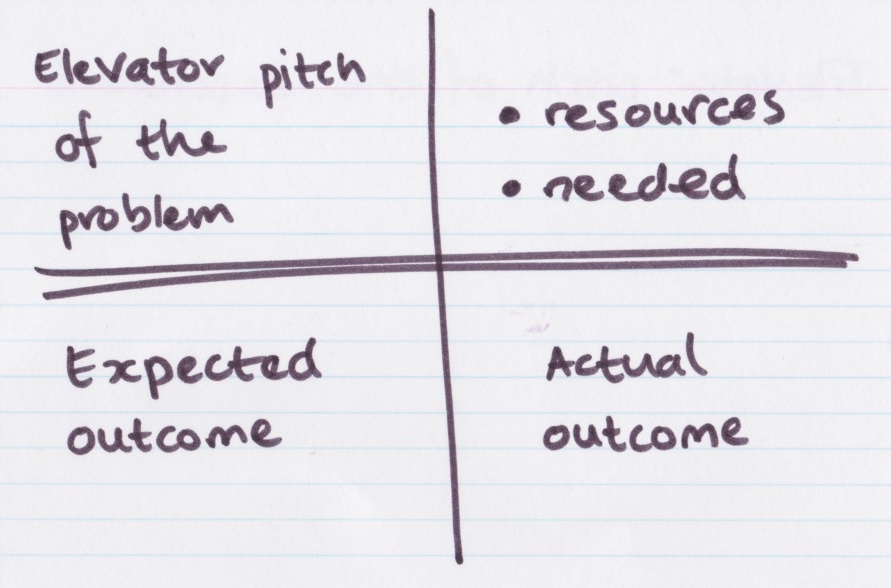 Elevator pitch
of the
problem
• resources
• needed
Expected
outcome
Actual
outcome